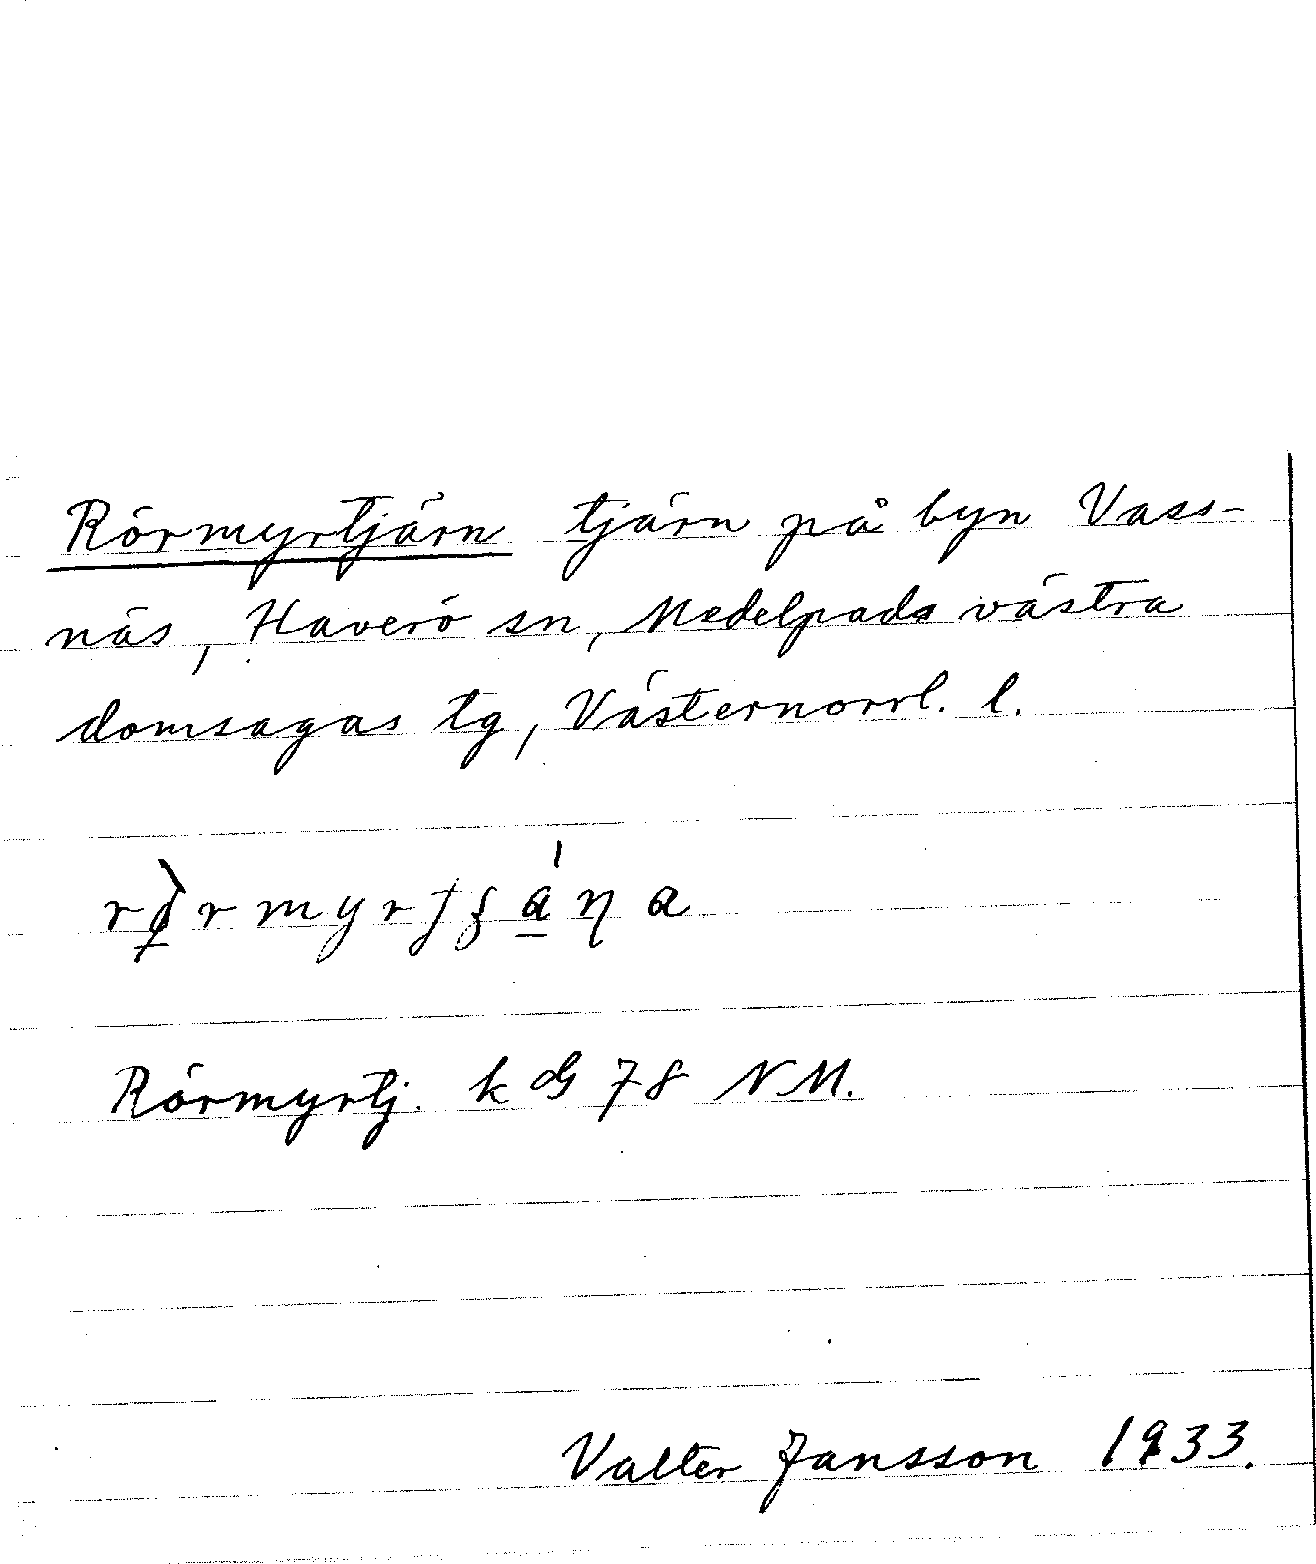 Rörmyrtjärn tjärn på byn Vass-
näs, Haverö sn, Medelpads västra
domsagas tg, Västernorrl. l.
Rörmyrtj. k 78 NM.
Valter Jansson 1933.